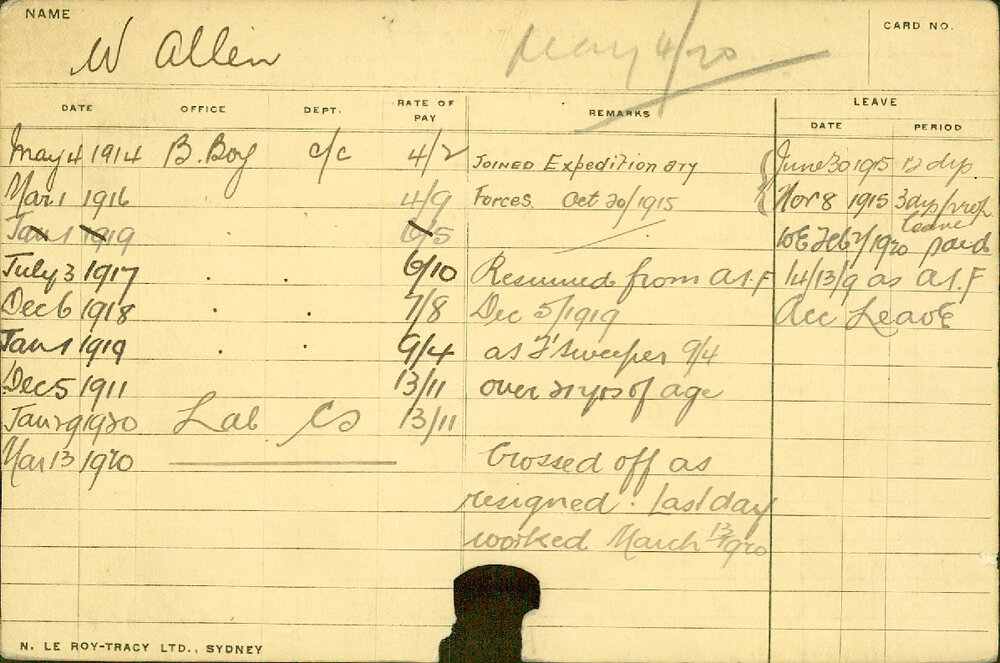 NAME
CARD NO.
W Allen
May 4/20
DATE OFFICE DEPT. RATE OF PAY REMARKS LEAVE
DATE PERIOD
May 4 1914 B. Boy c/c 4/2 JOINED Expeditionary June 30 1915 12 dys
Mar 1 1916 4/9 Forces. Oct 20/1915 Nov 8 1915 3 dys/prop leave
Jan 1 1919 6/5 WE Feb 7/1920 paid
July 3 1917 6/10 Resumed from A.I.F 14/13/9 as A.I.F
Dec 6 1918 7/8 Dec 5/1919 Acc Leave
Jan 1 1919 9/4 as F'sweeper 9/4
Dec 5 1911 13/11 over 21 yrs of age
Jan 29 1920 Lab Cs 13/11
Mar 13 1920 Crossed off as
resigned. Last day
worked March 13/1920
N. LE ROY-TRACY LTD., SYDNEY